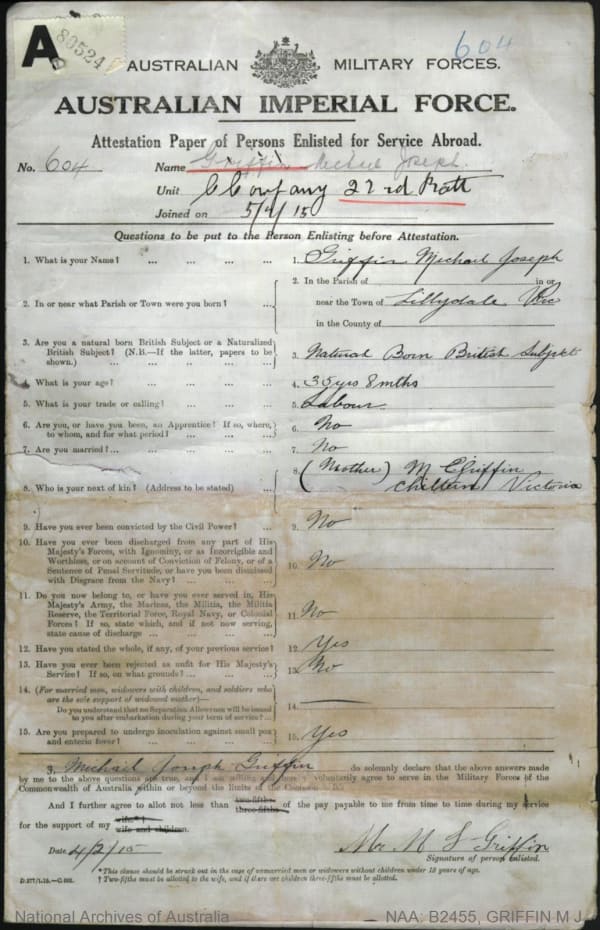 A
80524
604
AUSTRALIAN MILITARY FORCES.
AUSTRALIAN IMPERIAL FORCE.
Attestation Paper of Persons Enlisted for Service Abroad.
No. 604 Name Griffin Michael Joseph
Unit C Company 22nd Batt
Joined on 5/4/15
Questions to be put to the Person Enlisting before Attestation.
1. What is your Name? ... ... ... ... 1. Griffin Michael Joseph
2. In or near what Parish or Town were you born? ... 2. In the Parish of in or
near the Town of Lillydale Vic
in the County of
3. Are you a natural born British Subject or a Naturalized
British Subject? (N.B.—If the latter, papers to be
shown.) ... ... ... ... 3. Natural Born British Subject
4. What is your age? ... ... ... ... 4. 35 yrs 8 mths
5. What is your trade or calling? ... ... ... 5. Labour
6. Are you, or have you been, an Apprentice? If so, where,
to whom, and for what period? ... ... ... 6. No
7. Are you married? ... ... ... ... 7. No
8. Who is your next of kin? (Address to be stated) ... 8. (Mother) M Griffin
Chiltern Victoria
9. Have you ever been convicted by the Civil Power? ... 9. No
10. Have you ever been discharged from any part of His
Majesty's Forces, with Ignominy, or as Incorrigible and
Worthless, or on account of Conviction of Felony, or of a
Sentence of Penal Servitude, or have you been dismissed
with Disgrace from the Navy? ... ... 10. No
11. Do you now belong to, or have you ever served in, His
Majesty's Army, the Marines, the Militia, the Militia
Reserve, the Territorial Force, Royal Navy, or Colonial
Forces? If so, state which, and if not now serving,
state cause of discharge ... ... ... ... 11. No
12. Have you stated the whole, if any, of your previous service? 12. Yes
13. Have you ever been rejected as unfit for His Majesty's
Service? If so, on what grounds? ... ... ... 13. No
14. (For married men, widowers with children, and soldiers who
are the sole support of widowed mother)—
Do you understand that no Separation Allowance will be issued
to you after embarkation during your term of service? ... 14. —
15. Are you prepared to undergo inoculation against small pox
and enteric fever? ... ... ... ... 15. Yes
I, Michael Joseph Griffin do solemnly declare that the above answers made
by me to the above questions are true, and I am willing and hereby voluntarily agree to serve in the Military Forces of the
Commonwealth of Australia within or beyond the limits of the Commonwealth.
And I further agree to allot not less than two-fifths three-fifths of the pay payable to me from time to time during my service
for the support of my wife*† wife and children.
Date 4/2/15 Mr M J Griffin
Signature of person enlisted.
*This clause should be struck out in the case of unmarried men or widowers without children under 18 years of age.
† Two-fifths must be allotted to the wife, and if there are children three-fifths must be allotted.
National Archives of Australia NAA: B2455, GRIFFIN M J